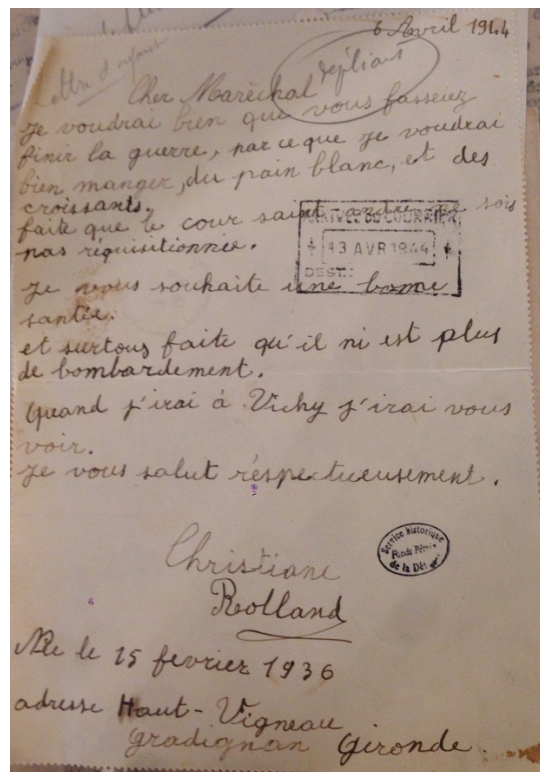 6 Avril 1944
Lettre d'enfant
dépliant
Cher Maréchal
Je voudrai bien que vous fasseiez
finir la guerre, parceque je voudrai
bien manger, du pain blanc, et des
croissants.
faite que le cour saint-andré ne sois
pas réquisitionnée.
ARRIVÉE DU COURRIER
13 AVR 1944
DEST.:
Je vous souhaite une bonne
santée.
et surtous faite qu'il ni est plus
de bombardement.
Quand j'irai à Vichy j'irai vous
voir.
Je vous salut réspectueusement.
Service historique
Fonds
de la Dé
Christiane
Rolland
Née le 15 fevrier 1936
adresse Haut-Vigneau
gradignan Gironde.